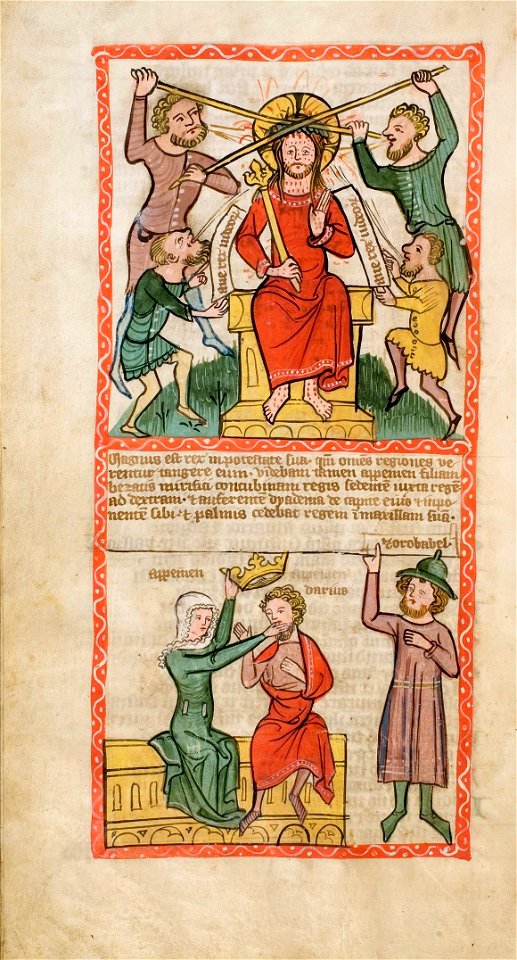 aue rex iudeorū
aue rex iudeorū
Magnus est rex in potestate sua. qm̄ omēs regiones ve
rentur tangere eum. Videbam tamen appemen filiam
bezatis mirifici concubinam regis sedentē iuxta regē
ad dextram. & auferentē dyadema de capite eius & inpo
nentem sibi. & palmis cedebat regem ī maxillam suā.
Zorobabel.
appemen
darius